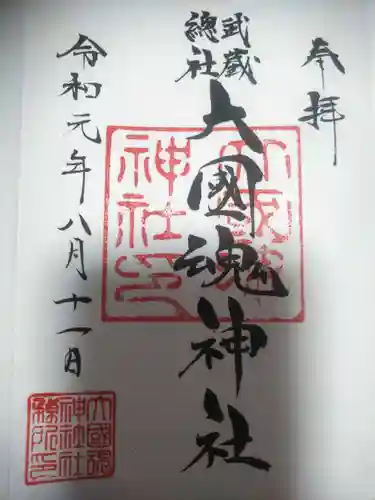 奉拝
武蔵
總社
大國魂神社
令和元年八月十一日
大國魂
神社印
大國魂
神社社